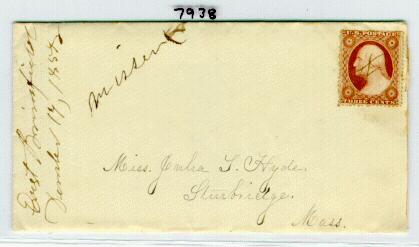 7938
East Springfield
17 1857
Missent
U.S. POSTAGE
THREE CENTS
Miss. Julia S. Hyde.
Sturbridge.
Mass.